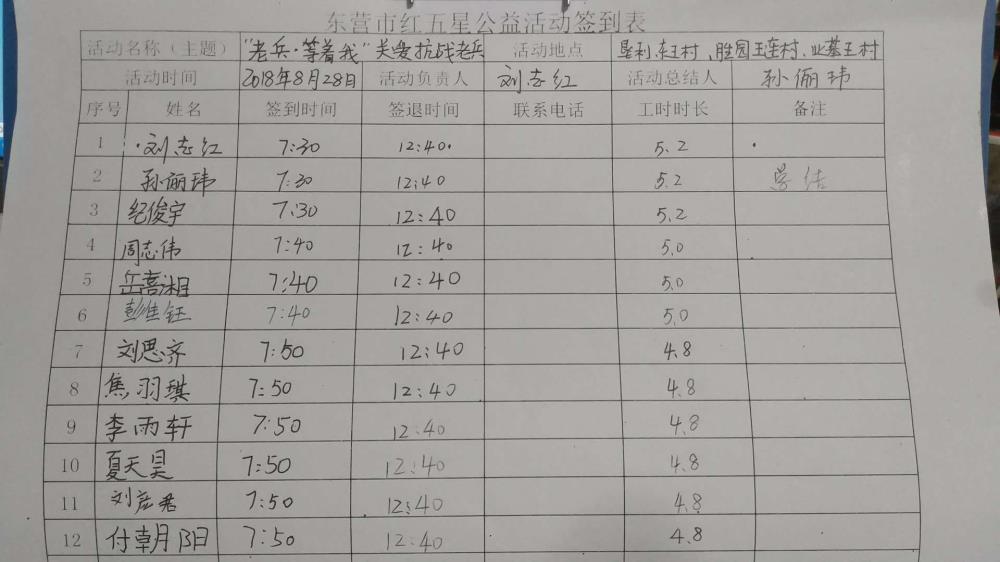 东营市红五星公益活动签到表
活动名称（主题） "老兵·等着我"关爱抗战老兵 活动地点 垦利,宋王村、胜园王连村、业基王村
活动时间 2018年8月28日 活动负责人 刘志红 活动总结人 孙俪玮
序号 姓名 签到时间 签退时间 联系电话 工时时长 备注
1 刘志红 7:30 12:40 5.2
2 孙俪玮 7:30 12:40 5.2 总结
3 纪俊宇 7:30 12:40 5.2
4 周志伟 7:40 12:40 5.0
5 岳喜湘 7:40 12:40 5.0
6 彭佳钰 7:40 12:40 5.0
7 刘思齐 7:50 12:40 4.8
8 焦羽琪 7:50 12:40 4.8
9 李雨轩 7:50 12:40 4.8
10 夏天昊 7:50 12:40 4.8
11 刘彦君 7:50 12:40 4.8
12 付朝阳 7:50 12:40 4.8